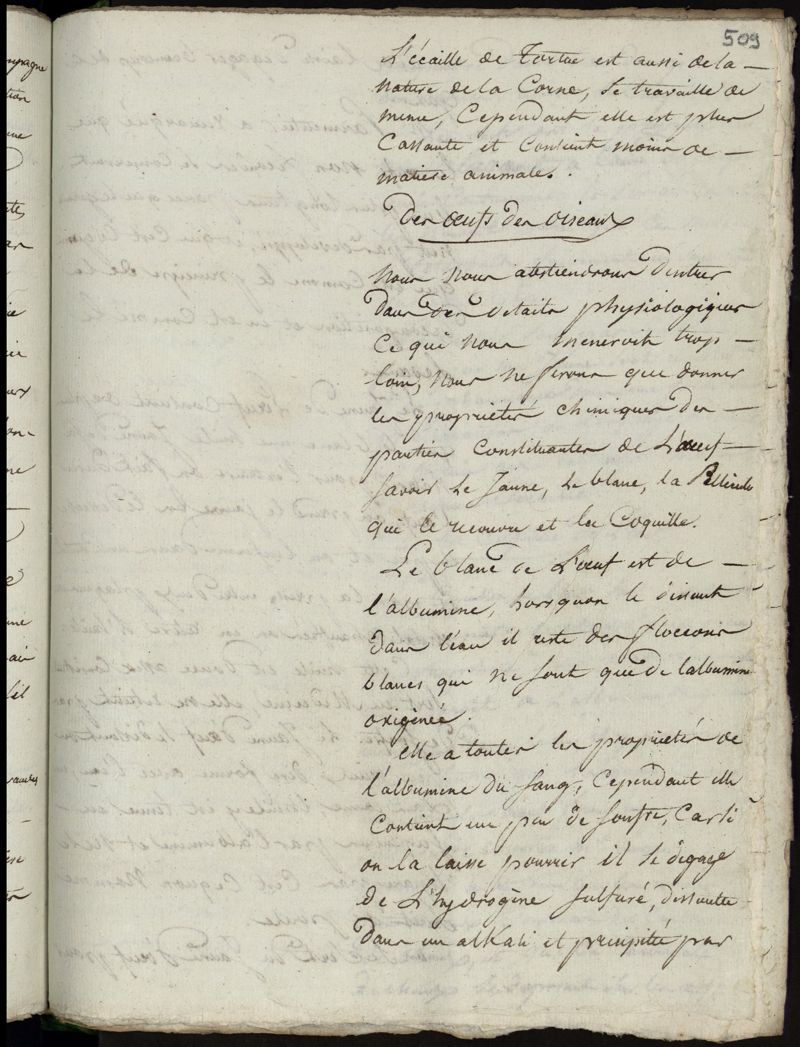 509
L'écaille de Tortue est aussi de la
nature de la Corne, se travaille de
meme, Cependant elle est plus
Cassante et Contient moins de
matiere animale.
Des œufs des oiseaux
Nous nous abstiendrons d'entrer
Dans des details physiologiques
Ce qui nous meneroit trop
loin, nous ne ferons que donner
les propriétés chimiques des
parties Constituantes de L'œuf
Savoir Le Jaune, Le blanc, la Pellicule
qui le recouvre et la Coquille.
Le blanc de L'œuf est de
l'albumine, lorsquon le dissout
Dans l'eau il reste des floccons
blancs qui ne sont que de l'albumine
oxigénée.
elle a toutes les propriétés de
l'albumine du sang, Cependant elle
Contient un peu de soufre, Car si
on la laisse pourrir il se degage
de L'hydrogène sulfuré, dissoute
Dans un alkali et precipité par